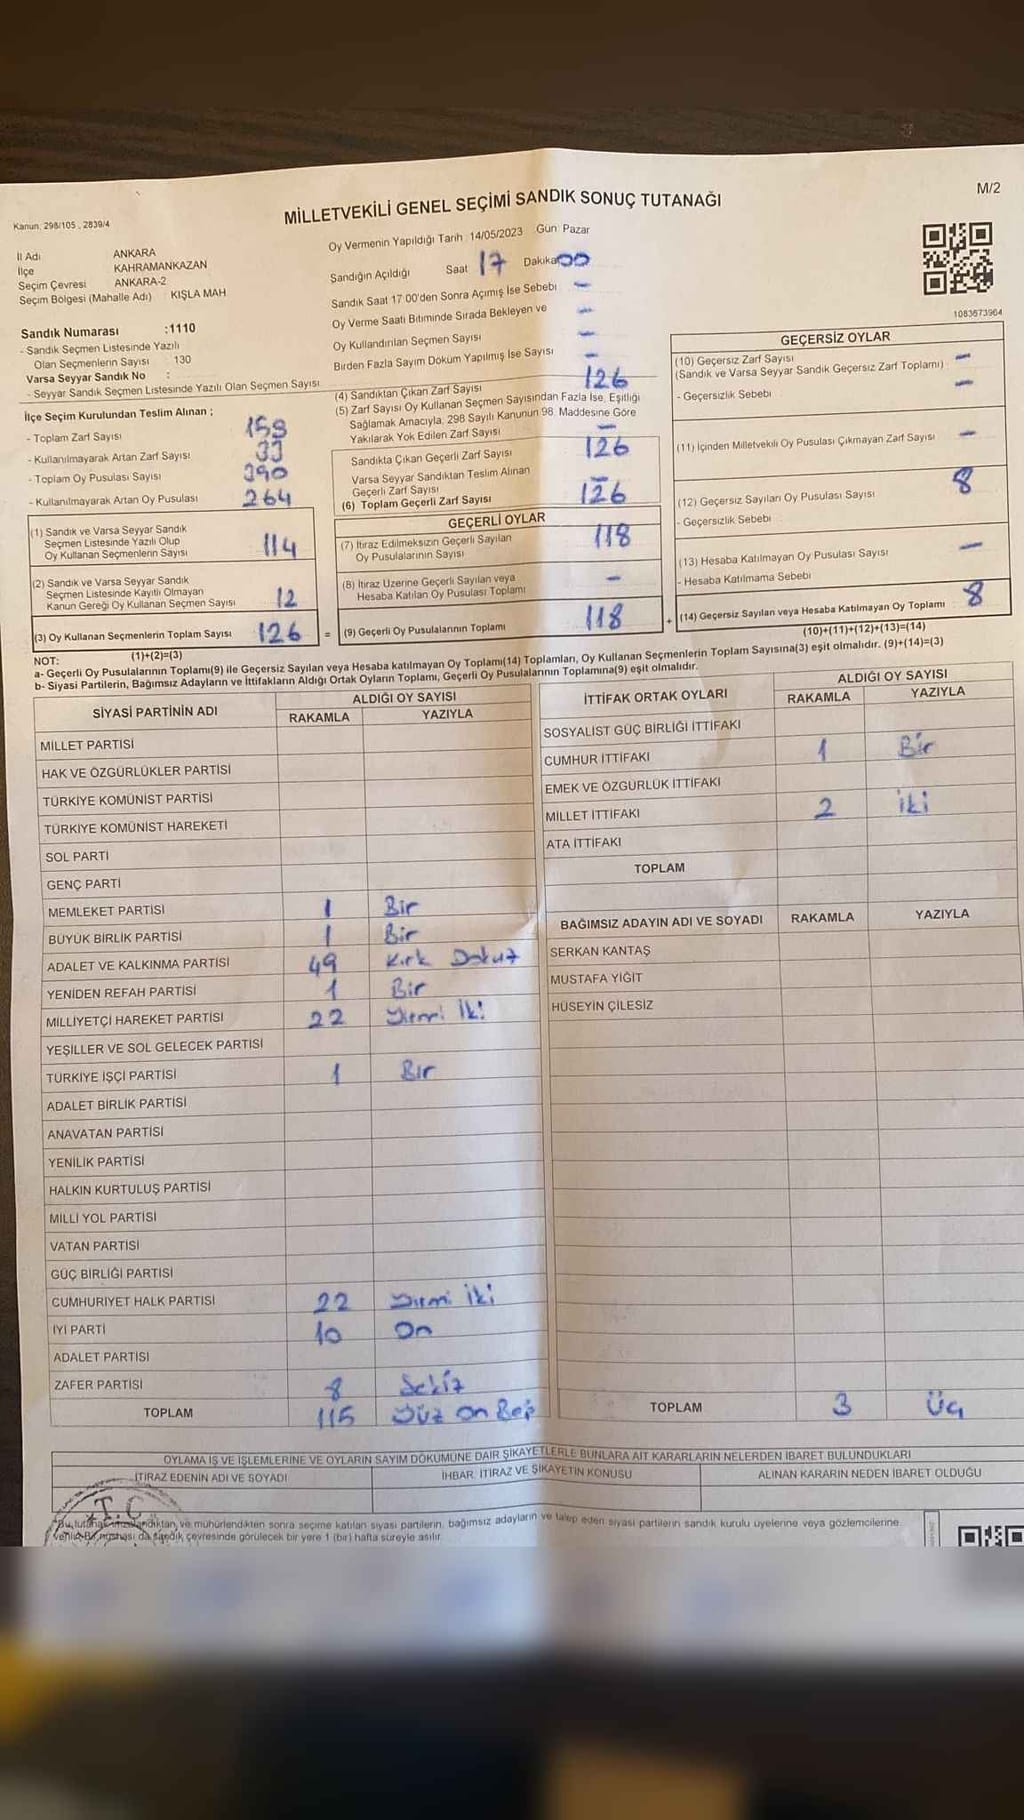 M/2
Kanun: 298/105, 2839/4
MİLLETVEKİLİ GENEL SEÇİMİ SANDIK SONUÇ TUTANAĞI
İl Adı ANKARA
İlçe KAHRAMANKAZAN
Seçim Çevresi ANKARA-2
Seçim Bölgesi (Mahalle Adı) KIŞLA MAH
Sandık Numarası :1110
- Sandık Seçmen Listesinde Yazılı
Olan Seçmenlerin Sayısı 130
Varsa Seyyar Sandık No :
- Seyyar Sandık Seçmen Listesinde Yazılı Olan Seçmen Sayısı
Oy Vermenin Yapıldığı Tarih 14/05/2023 Gün: Pazar
Sandığın Açıldığı Saat 17 Dakika 00
Sandık Saat 17 00'den Sonra Açımış İse Sebebi -
Oy Verme Saati Bitiminde Sırada Bekleyen ve -
Oy Kullandırılan Seçmen Sayısı -
Birden Fazla Sayım Döküm Yapılmış İse Sayısı -
1083673964
İlçe Seçim Kurulundan Teslim Alınan ;
- Toplam Zarf Sayısı 159
- Kullanılmayarak Artan Zarf Sayısı 33
- Toplam Oy Pusulası Sayısı 390
- Kullanılmayarak Artan Oy Pusulası 264
(1) Sandık ve Varsa Seyyar Sandık
Seçmen Listesinde Yazılı Olup
Oy Kullanan Seçmenlerin Sayısı 114
(2) Sandık ve Varsa Seyyar Sandık
Seçmen Listesinde Kayıtlı Olmayan
Kanun Gereği Oy Kullanan Seçmen Sayısı 12
(3) Oy Kullanan Seçmenlerin Toplam Sayısı 126 =
(1)+(2)=(3)
(4) Sandıktan Çıkan Zarf Sayısı 126
(5) Zarf Sayısı Oy Kullanan Seçmen Sayısından Fazla İse, Eşitliği
Sağlamak Amacıyla, 298 Sayılı Kanunun 98. Maddesine Göre
Yakılarak Yok Edilen Zarf Sayısı -
Sandıkta Çıkan Geçerli Zarf Sayısı 126
Varsa Seyyar Sandıktan Teslim Alınan
Geçerli Zarf Sayısı -
(6) Toplam Geçerli Zarf Sayısı 126
GEÇERLİ OYLAR
(7) İtiraz Edilmeksizin Geçerli Sayılan
Oy Pusulalarının Sayısı 118
(8) İtiraz Üzerine Geçerli Sayılan veya
Hesaba Katılan Oy Pusulası Toplamı -
(9) Geçerli Oy Pusulalarının Toplamı 118 +
GEÇERSİZ OYLAR
(10) Geçersiz Zarf Sayısı -
(Sandık ve Varsa Seyyar Sandık Geçersiz Zarf Toplamı)
- Geçersizlik Sebebi -
(11) İçinden Milletvekili Oy Pusulası Çıkmayan Zarf Sayısı -
(12) Geçersiz Sayılan Oy Pusulası Sayısı 8
- Geçersizlik Sebebi
(13) Hesaba Katılmayan Oy Pusulası Sayısı -
- Hesaba Katılmama Sebebi
(14) Geçersiz Sayılan veya Hesaba Katılmayan Oy Toplamı 8
(10)+(11)+(12)+(13)=(14)
NOT:
a- Geçerli Oy Pusulalarının Toplamı(9) ile Geçersiz Sayılan veya Hesaba katılmayan Oy Toplamı(14) Toplamları, Oy Kullanan Seçmenlerin Toplam Sayısına(3) eşit olmalıdır. (9)+(14)=(3)
b- Siyasi Partilerin, Bağımsız Adayların ve İttifakların Aldığı Ortak Oyların Toplamı, Geçerli Oy Pusulalarının Toplamına(9) eşit olmalıdır.
SİYASİ PARTİNİN ADI ALDIĞI OY SAYISI
RAKAMLA YAZIYLA
MİLLET PARTİSİ
HAK VE ÖZGÜRLÜKLER PARTİSİ
TÜRKİYE KOMÜNİST PARTİSİ
TÜRKİYE KOMÜNİST HAREKETİ
SOL PARTİ
GENÇ PARTİ
MEMLEKET PARTİSİ 1 Bir
BÜYÜK BİRLİK PARTİSİ 1 Bir
ADALET VE KALKINMA PARTİSİ 49 Kırk Dokuz
YENİDEN REFAH PARTİSİ 1 Bir
MİLLİYETÇİ HAREKET PARTİSİ 22 Yirmi İki
YEŞİLLER VE SOL GELECEK PARTİSİ
TÜRKİYE İŞÇİ PARTİSİ 1 Bir
ADALET BİRLİK PARTİSİ
ANAVATAN PARTİSİ
YENİLİK PARTİSİ
HALKIN KURTULUŞ PARTİSİ
MİLLİ YOL PARTİSİ
VATAN PARTİSİ
GÜÇ BİRLİĞİ PARTİSİ
CUMHURİYET HALK PARTİSİ 22 Yirmi İki
İYİ PARTİ 10 On
ADALET PARTİSİ
ZAFER PARTİSİ 8 Sekiz
TOPLAM 115 Yüz On Beş
İTTİFAK ORTAK OYLARI ALDIĞI OY SAYISI
RAKAMLA YAZIYLA
SOSYALİST GÜÇ BİRLİĞİ İTTİFAKI
CUMHUR İTTİFAKI 1 Bir
EMEK VE ÖZGÜRLÜK İTTİFAKI
MİLLET İTTİFAKI 2 İki
ATA İTTİFAKI
TOPLAM
BAĞIMSIZ ADAYIN ADI VE SOYADI RAKAMLA YAZIYLA
SERKAN KANTAŞ
MUSTAFA YİĞİT
HÜSEYİN ÇİLESİZ
TOPLAM 3 Üç
OYLAMA İŞ VE İŞLEMLERİNE VE OYLARIN SAYIM DÖKÜMÜNE DAİR ŞİKAYETLERLE BUNLARA AİT KARARLARIN NELERDEN İBARET BULUNDUKLARI
İTİRAZ EDENİN ADI VE SOYADI İHBAR, İTİRAZ VE ŞİKAYETİN KONUSU ALINAN KARARIN NEDEN İBARET OLDUĞU
T.C.
Bu tutanak imzalandıktan ve mühürlendikten sonra seçime katılan siyasi partilerin, bağımsız adayların ve talep eden siyasi partilerin sandık kurulu üyelerine veya gözlemcilerine
verilir. Bir nüshası da sandık çevresinde görülecek bir yere 1 (bir) hafta süreyle asılır.